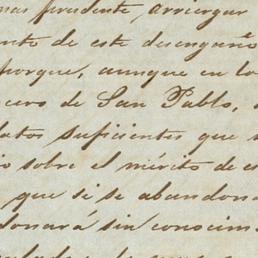 mas prudente, arriesgar
nto de este desengaño
porque, aunque en lo
cero de San Pablo,
datos suficientes que
io sobre el mérito de es
que si se abandona
donará sin conocim